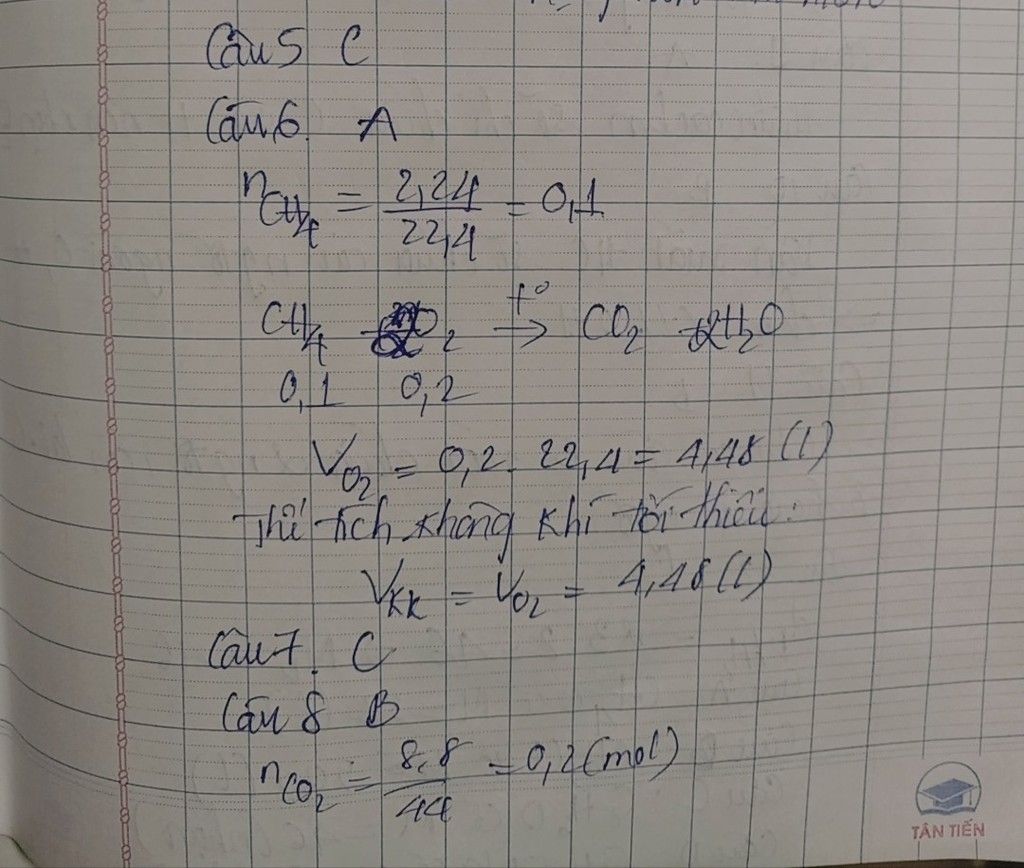 Câu 5 C
Câu 6. A
nCH₄ = 2,24 / 22,4 = 0,1
CH₄ + 2O₂ t° → CO₂ + 2H₂O
0,1 0,2
VO₂ = 0,2 . 22,4 = 4,48 (l)
Thể tích không khí tối thiểu:
VKK = VO₂ = 4,48 (l)
Câu 7. C
Câu 8 B
nCO₂ = 8,8 / 44 = 0,2 (mol)
TÂN TIẾN